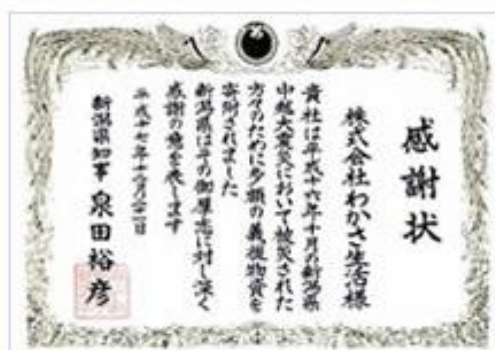 感謝状
株式会社わかさ生活様
貴社は平成十六年十月の新潟県
中越大震災において被災された
方々のために多額の義援物資を
寄附されました
新潟県はその御厚志に対し深く
感謝の意を表します
平成十七年十月二十一日
新潟県知事 泉田裕彦